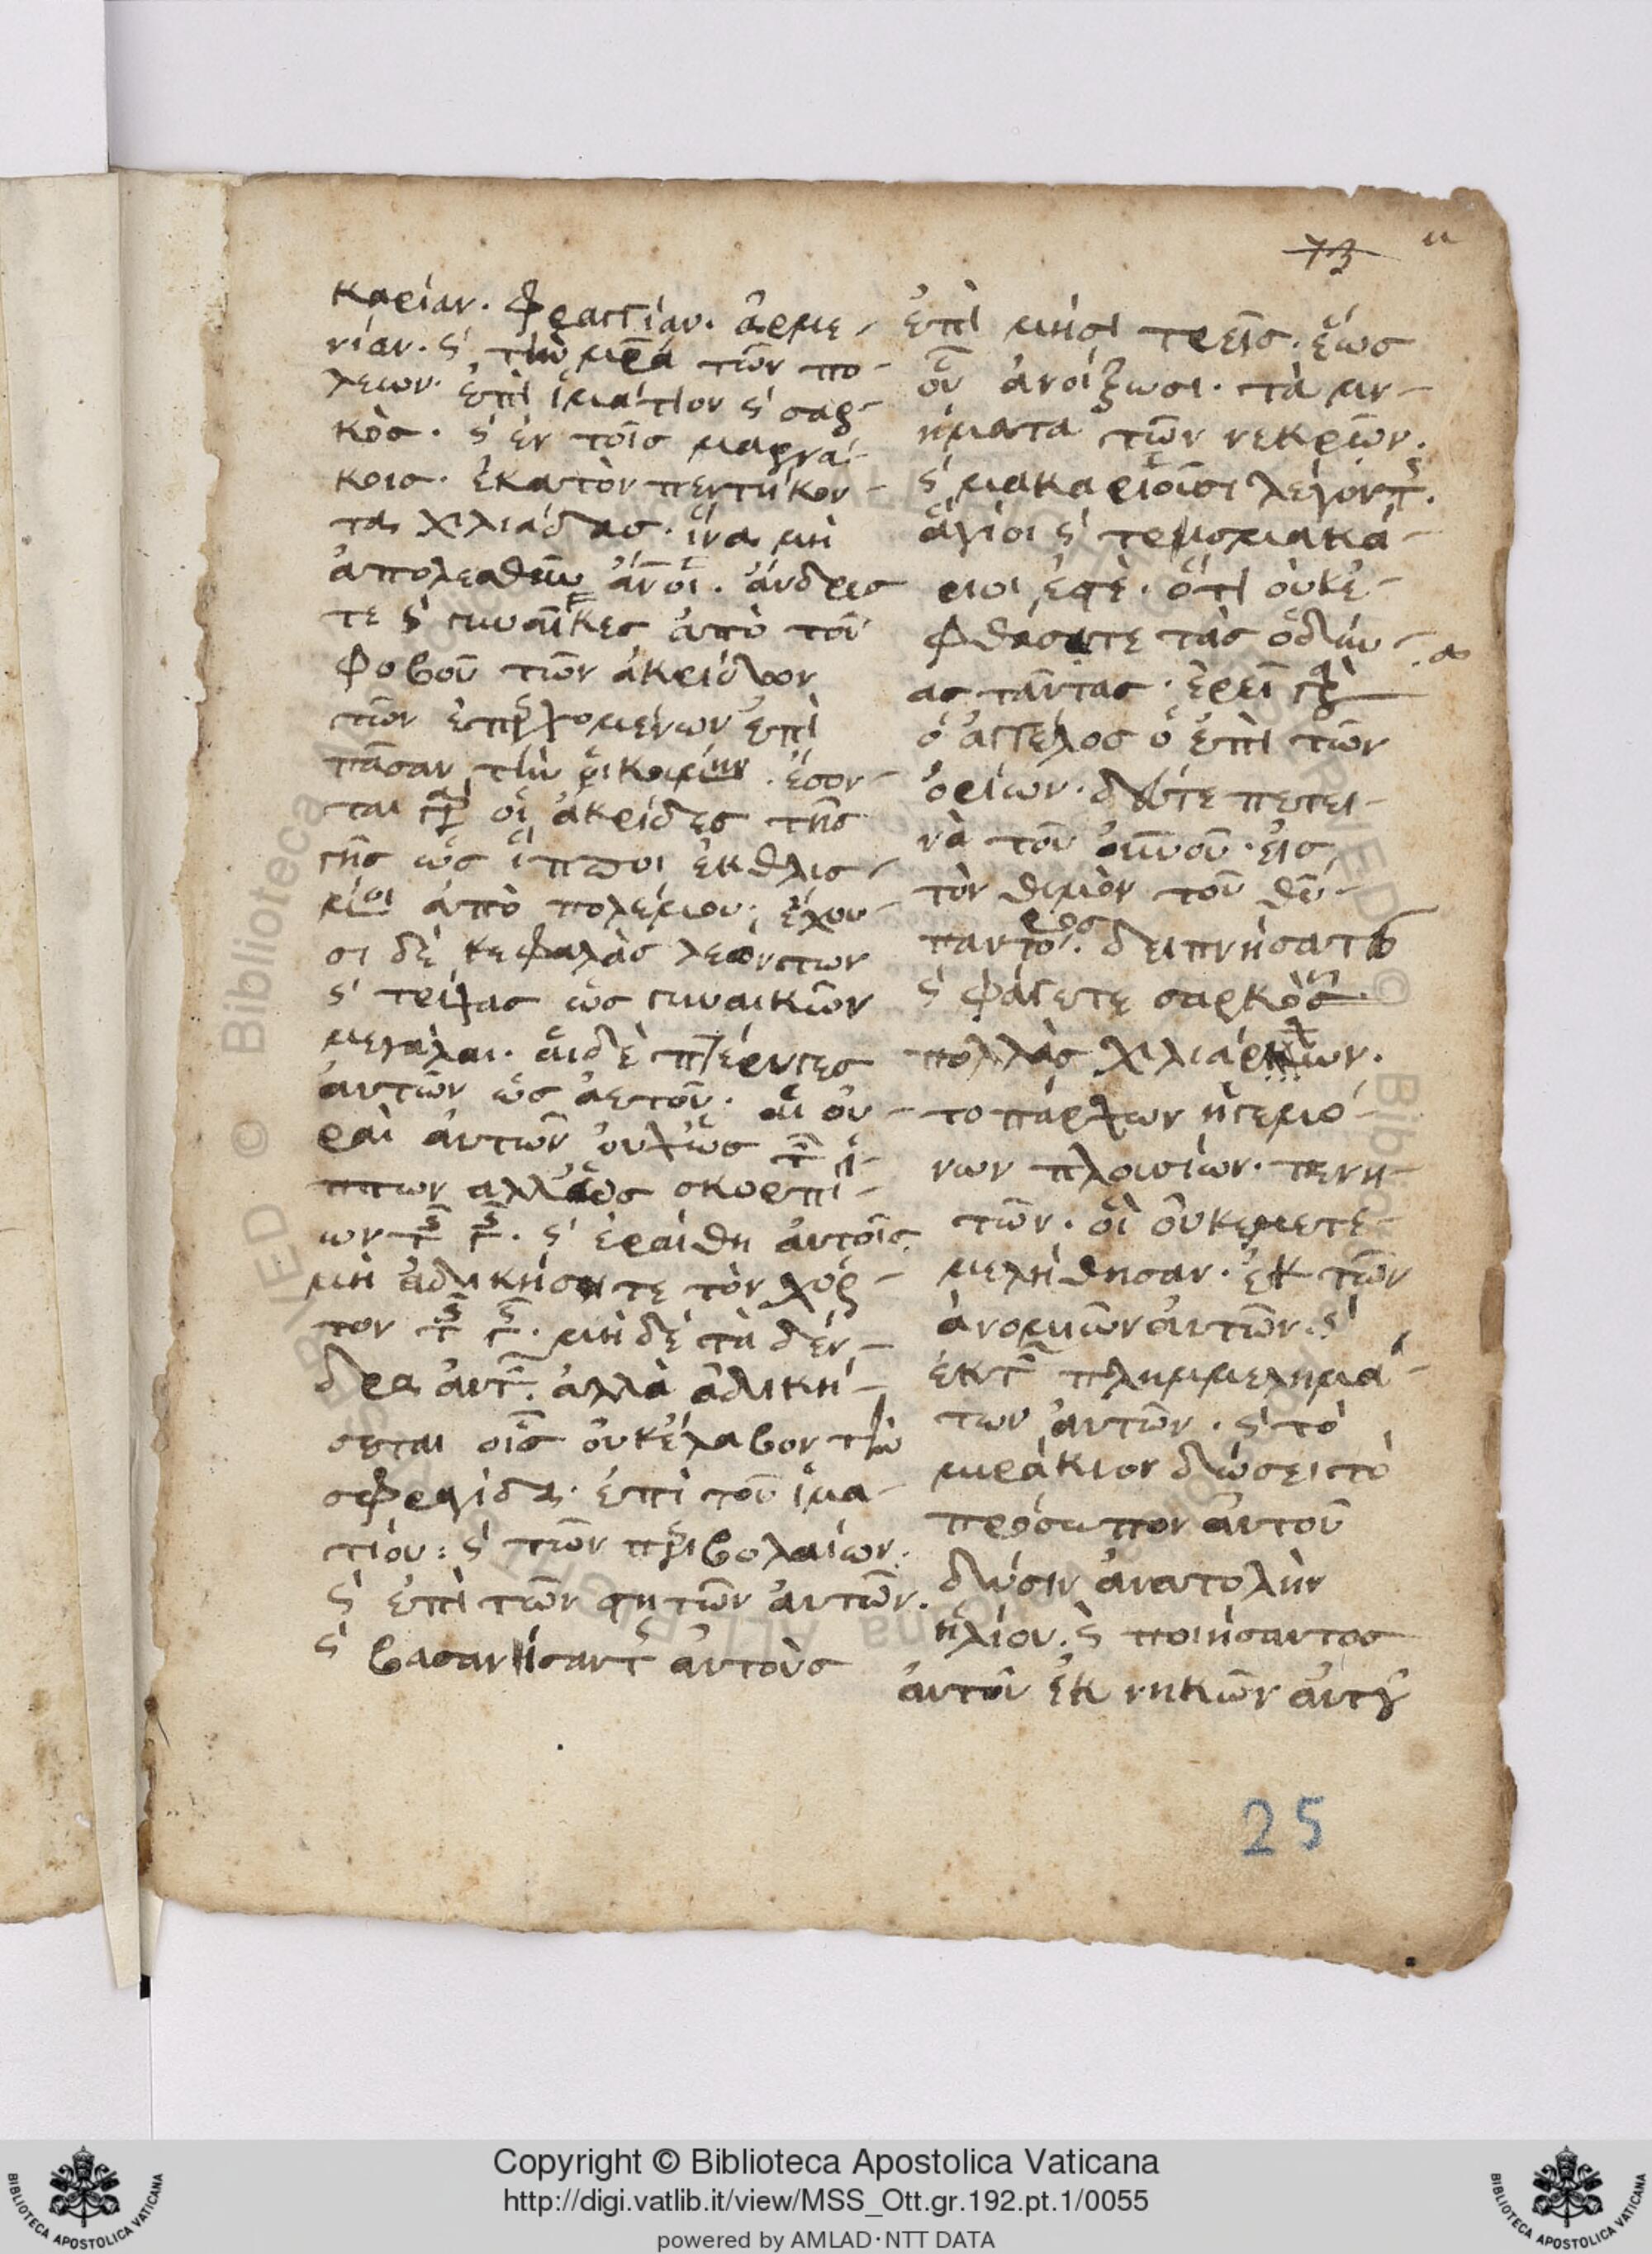 73
καρίαν. φραγγίαν. ἀρμε-
νίαν. ϛ τὴν μέρα τῶν πο-
λεων. ἐπὶ ἱμάτιον ϛ σαρ-
κὸσ. ϛ ἐν τοῖσ
κοισ. ἑκατὸν πεντήκον-
τα χιλιάδασ. ἵνα μὴ
ἀπολεσθῶσιν ἄνοι. ἄνδρεσ
τε ϛ γυναῖκεσ ἀπὸ τοῦ
φοβοῦ τῶν ἀκρίδων
τῶν ἐπερχομένων ἐπὶ
πᾶσαν τὴν οἰκουμένην. ἔσον-
ται γὰρ οἱ ἀκρίδεσ τῆσ
γῆσ ὡσ ἵπποι ἐκθλισ-
μένοι ἀπὸ πολέμου, ἔχου-
σι δὲ κεφαλὰσ λεόντων
ϛ τρίχασ ὡσ γυναικῶν
μεγάλαι. αἱ δὲ πτέρυγεσ
ἀυτῶν ὡσ ἀετοῦ. αἱ ὀυ-
ραὶ ἀυτῶν ὀυχ ὡσ τῶν ἵ-
ππων αλλ ὡσ σκορπί-
ων τῆσ γῆσ. ϛ ἐραίθη ἀυτοῖσ
μὴ ἀδικήσητε τὸν χόρ-
τον τῆσ γῆσ. μὴ δὲ τὰ δέν-
δρα ἀυτῆσ. ἀλλὰ ἀδική-
σεται οἷσ ὀυκ ἔλαβον τὴν
σφραγίδα. ἐπὶ τοῦ ἱμα-
τίου: ϛ τῶν περιβολαίων.
ϛ ἐπὶ τῶν φητῶν ἀυτῶν.
ϛ βασανήσαντες ἀυτοὺσ
ἐπὶ μησὶ τρεῖσ. ἕωσ
οὗ ἀνοίξωσι. τὰ μν-
ήματα τῶν νεκρῶν.
ϛ μακαριοῦσι λέγοντες.
ἅγιοι ϛ τρισμακά-
ριοι ἐστὲ. ὅτι ὀυκ ἐ-
φθάσατε τὰσ ὀδύν-
ασ ταύτασ. ἐρεῖ γὰρ
ὁ ἄγγελοσ ὁ ἐπὶ τῶν
ὀρίων. δεῦτε πετει-
νὰ τοῦ ὀυνοῦ. εἰσ
τὸν θιμὸν τοῦ θῦ
παντοσ. δειπνήσατε
ϛ φάγετε σαρκὸσ
πολλὰσ χιλιάρχων.
τοπάρχων ἡγεμό-
νων πλουσίων. πενη-
τῶν. οἱ ὀυκ εμετε-
μελήθησαν. ἐκ τῶν
ἀνομιῶν ἀυτῶν. ϛ
ἐκ τῶν πλημμελημά-
των ἀυτῶν. ϛ τὸ
μιράκιον δώσει τὸ
πρόσωπον ἀυτοῦ
δύσην ἀνατολὴν
ἡλίου. ϛ ποιήσαντοσ
ἀυτοῦ ἐκ νηκῶν ἀυτοῦ
25
Copyright © Biblioteca Apostolica Vaticana
http://digi.vatlib.it/view/MSS_Ott.gr.192.pt.1/0055
powered by AMLAD·NTT DATA
BIBLIOTECA APOSTOLICA VATICANA
BIBLIOTECA APOSTOLICA VATICANA